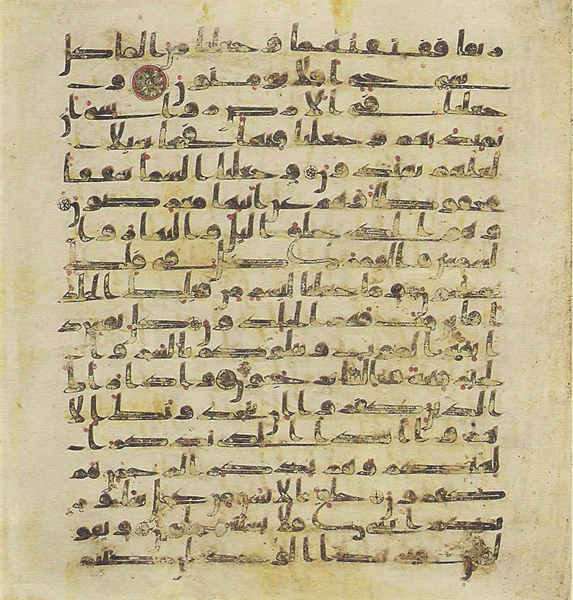 رتقا ففتقنهما و جعلنا من الما كل
شى حى افلا يومنون و
جعلنا فى الارض روسى ان
تميد بهم و جعلنا فيها فجاجا سبلا
لعلهم يهتدون و جعلنا السما سقفا
محفوظا و هم عن ايتها معرضون
و هو الذى خلق اليل و النهار و ا
لشمس و القمر كل فى فلك
يسبحون و ما جعلنا لبشر من قبلك الخلد
افاين مت فهم الخلدون كل نفس ذ
ايقة الموت و نبلوكم بالشر و ا
لخير فتنة و الينا ترجعون و اذا را
ك الذين كفروا ان يتخذونك الا
هزوا اهذا الذى يذكر
الهتكم و هم بذكر الرحمن هم
كفرون خلق الانسن من عجل ساوريـ
ـكم ايتى فلا تستعجلون و يقو
لون متى هذا الوعد ان كنتم